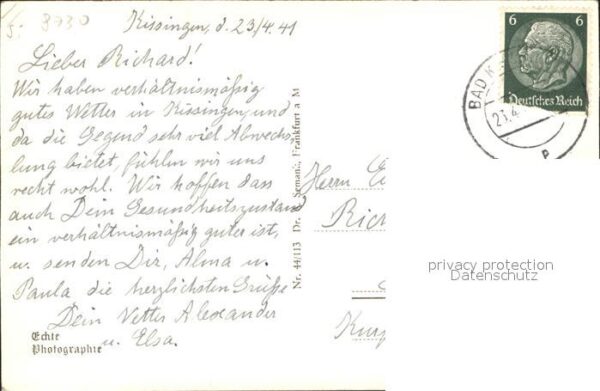 f. 8730
Kissingen, d. 23/4. 41
Lieber Richard!
Wir haben verhältnismäßig
gutes Wetter in Kissingen, und
da die Gegend sehr viel Abwechs-
lung bietet, fühlen wir uns
recht wohl. Wir hoffen dass
auch Dein Gesundheitszustand
ein verhältnismäßig guter ist,
u. senden Dir, Alma u.
Paula die herzlichsten Grüße
Dein Vetter Alexander
u. Elsa.
Echte
Photographie
Nr. 44/113 Dr. Semank, Frankfurt a M
6 6
Deutsches Reich
BAD K
23.4
Herrn
Rich
Kurp
privacy protection
Datenschutz